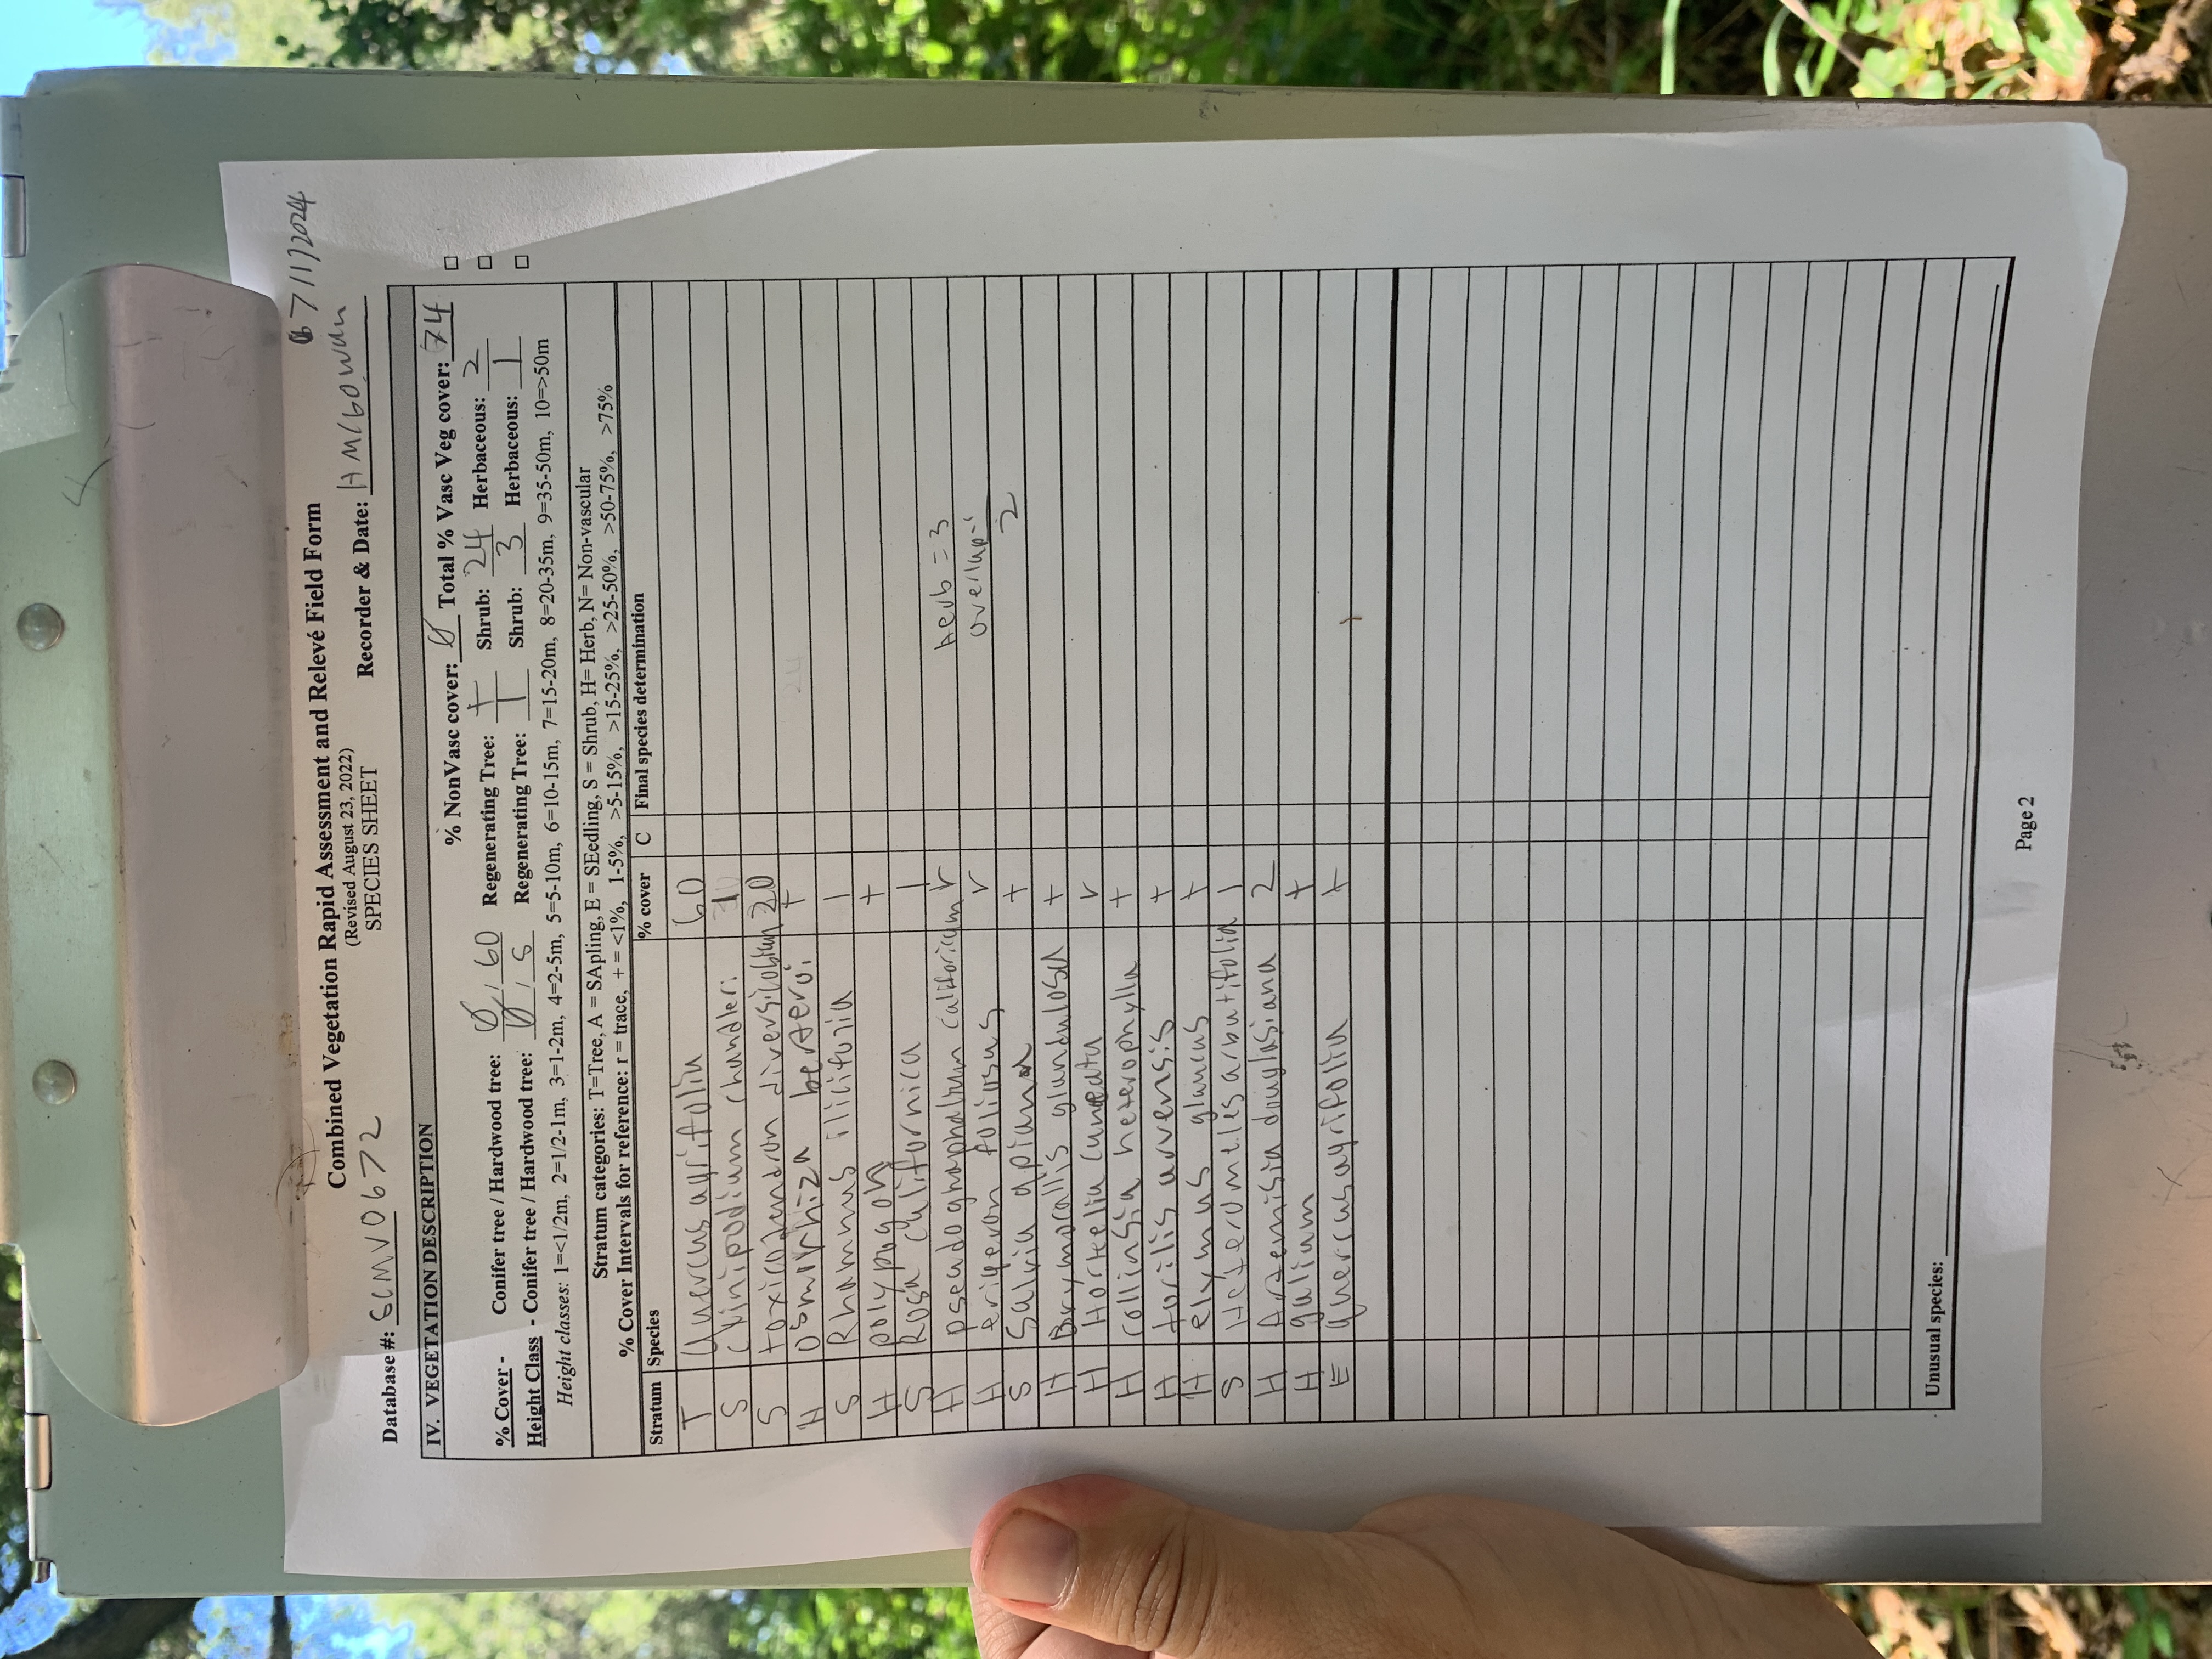 Combined Vegetation Rapid Assessment and Relevé Field Form
(Revised August 23, 2022)
SPECIES SHEET
67/11/2024
Database #: SCMV0672 Recorder & Date: HMcGowan
IV. VEGETATION DESCRIPTION
% NonVasc cover: Ø Total % Vasc Veg cover: 74 □
% Cover - Conifer tree / Hardwood tree: Ø / 60 Regenerating Tree: + Shrub: 24 Herbaceous: 2 □
Height Class - Conifer tree / Hardwood tree: Ø / 5 Regenerating Tree: 1 Shrub: 3 Herbaceous: 1 □
Height classes: 1=<1/2m, 2=1/2-1m, 3=1-2m, 4=2-5m, 5=5-10m, 6=10-15m, 7=15-20m, 8=20-35m, 9=35-50m, 10=>50m
Stratum categories: T=Tree, A = SApling, E = SEedling, S = Shrub, H= Herb, N= Non-vascular
% Cover Intervals for reference: r = trace, + = <1%, 1-5%, >5-15%, >15-25%, >25-50%, >50-75%, >75%
Stratum Species % cover C Final species determination
T Quercus agrifolia 60
S Clinipodium chandleri
S toxicodendron diversilobum 20
H Osmorhiza berteroi +
S Rhamnus ilicifolia 1
H polypogon +
S Rosa californica 1
H pseudognaphalium californicum r herb = 3
H erigeron foliosus r overlap-1
S Salvia apiana + 2
H Drymocallis glandulosa +
H Horkelia cuneata r
H collinsia heterophylla +
H torilis arvensis +
H elymus glaucus +
S Heteromeles arbutifolia 1
H Artemisia douglasiana 2
H galium +
E Quercus agrifolia +
Unusual species:
Page 2